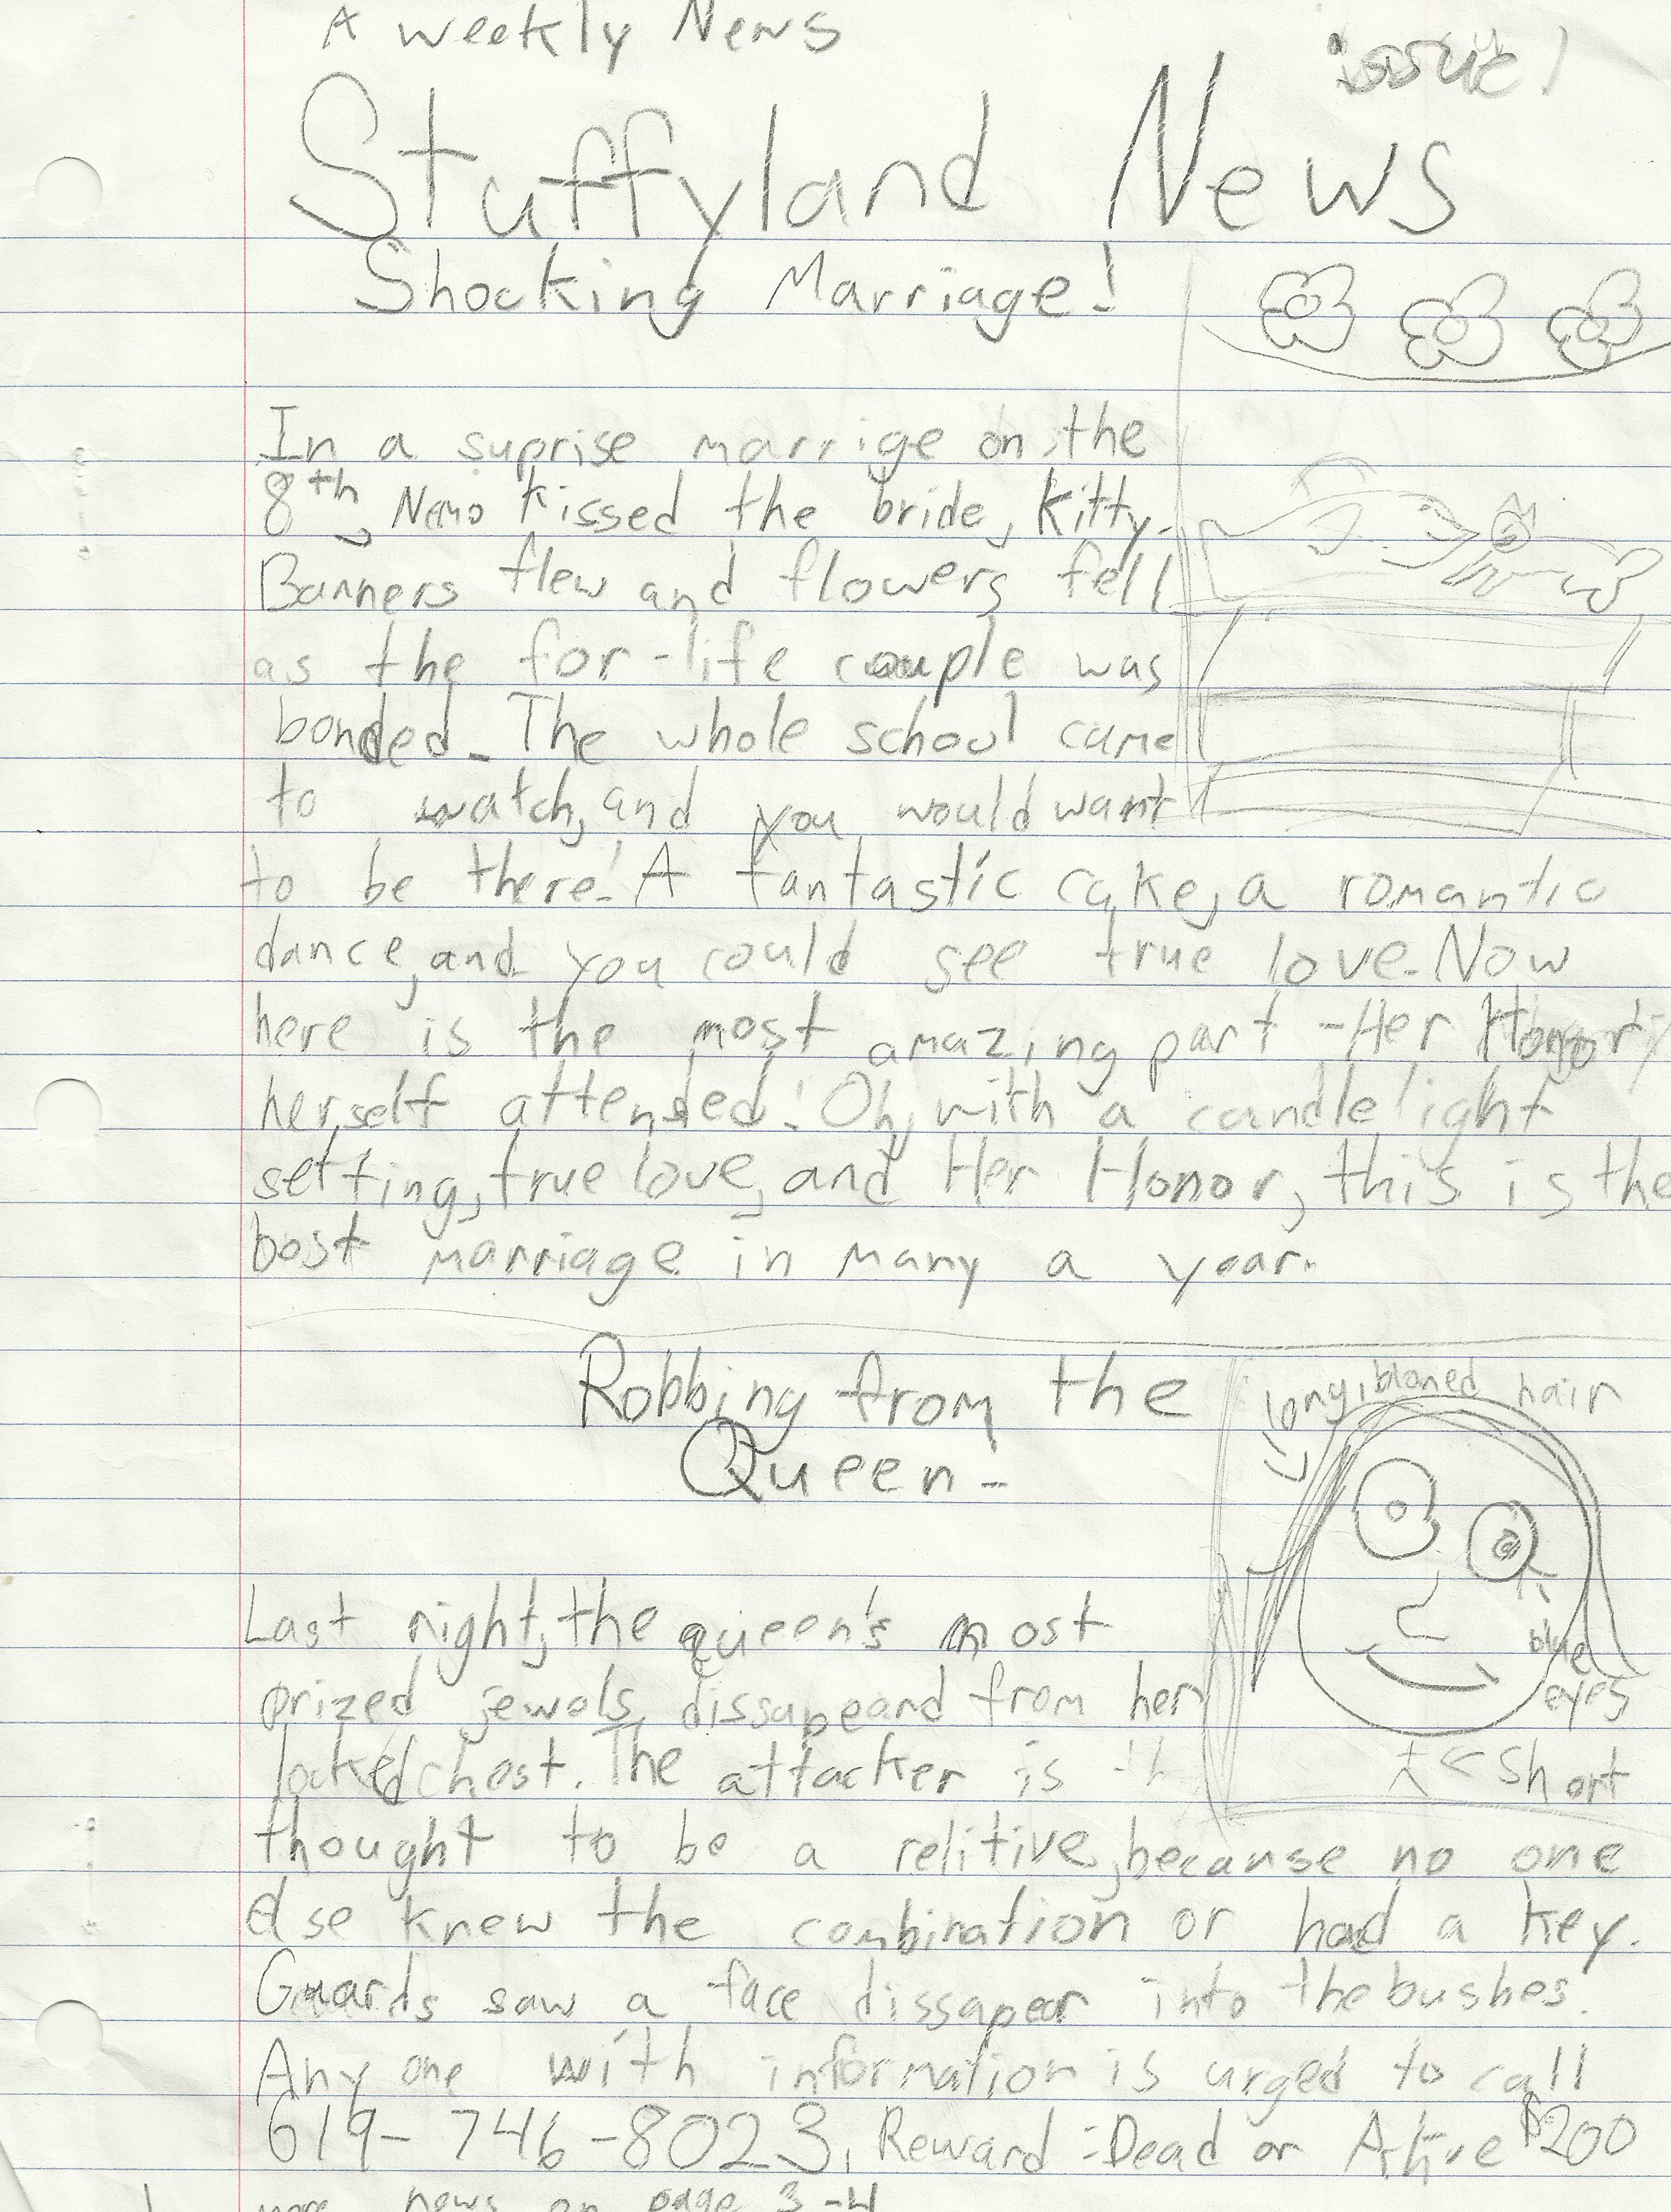 A weekly News
issue!
Stuffyland News
Shocking Marriage!
In a suprise marrige on the
8th, Nemo kissed the bride, Kitty.
Banners flew and flowers fell
as the for-life couple was
bonded. The whole school came
to watch, and you would want
to be there! A fantastic cake, a romantic
dance, and you could see true love. Now
here is the most amazing part - Her Honor
herself attended! Oh, with a candlelight
setting, true love, and Her Honor, this is the
best marriage in many a year.
Robbing from the
Queen-
long, bloned hair
blue
eyes
<short
Last night, the queen's most
prized jewels dissapeard from her
locked chest. The attacker is th
thought to be a relitive, because no one
else knew the combination or had a key.
Guards saw a face dissapear into the bushes.
Any one with information is urged to call
619-746-8023. Reward: Dead or Alive $200
more news on page 3-4